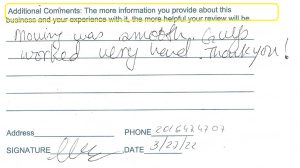 Additional Comments: The more information you provide about this
business and your experience with it, the more helpful your review will be
Moving was smooth. Guys
worked very hard. Thank you!
Address PHONE 2016474707
SIGNATURE DATE 3/27/22